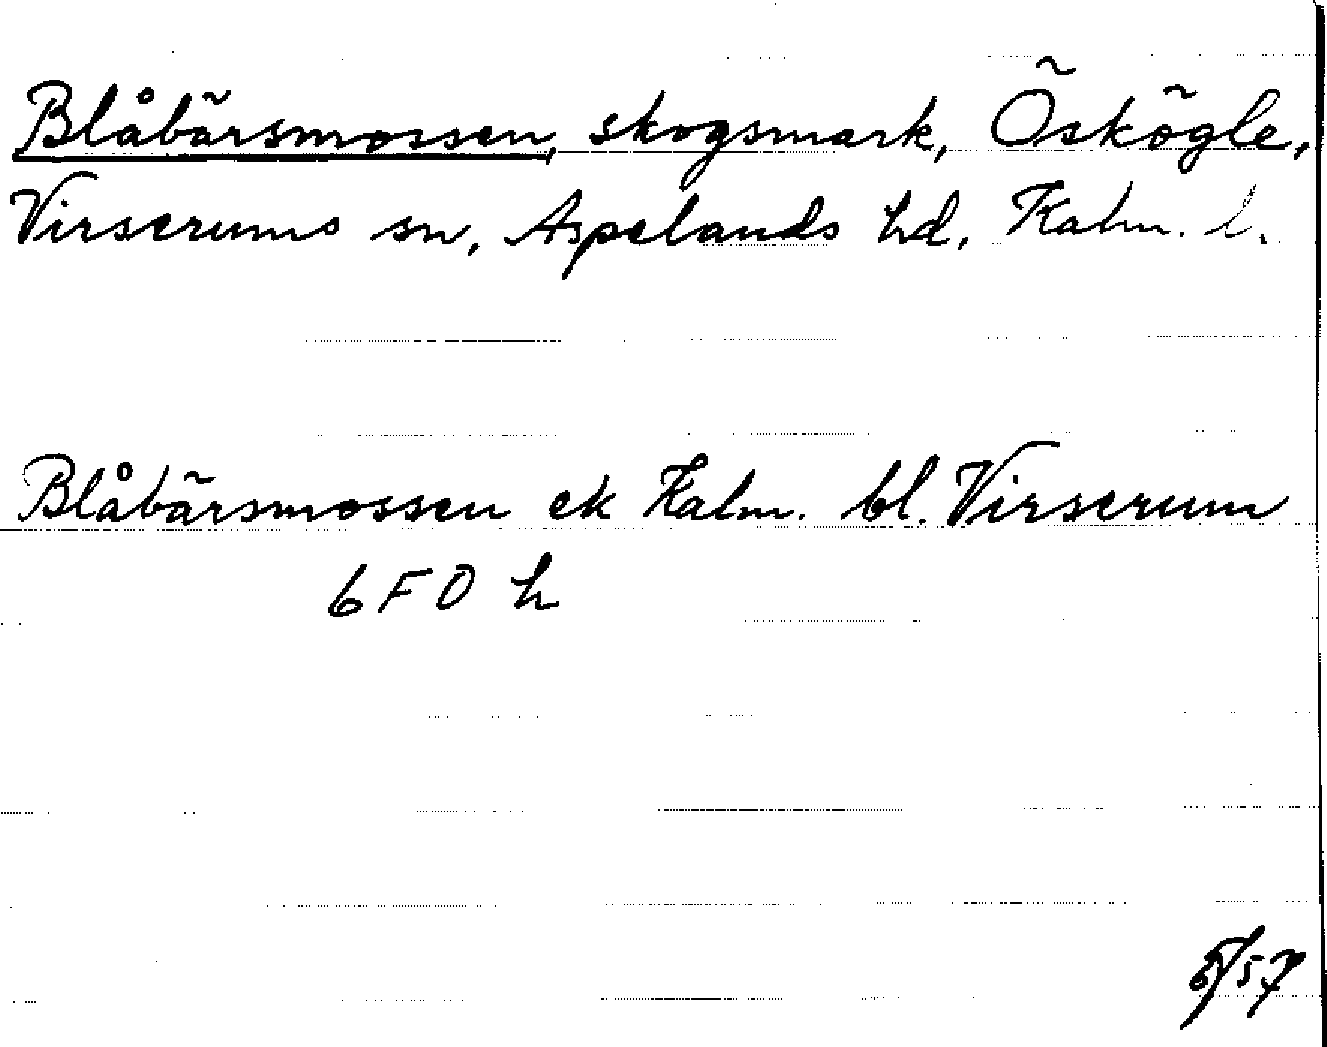 Blåbärsmossen, skogsmark, Öskögle,
Virserums sn, Aspelands hd, Kalm. l.
Blåbärsmossen ek Kalm. bl. Virserum
6 F 0 h
6/57